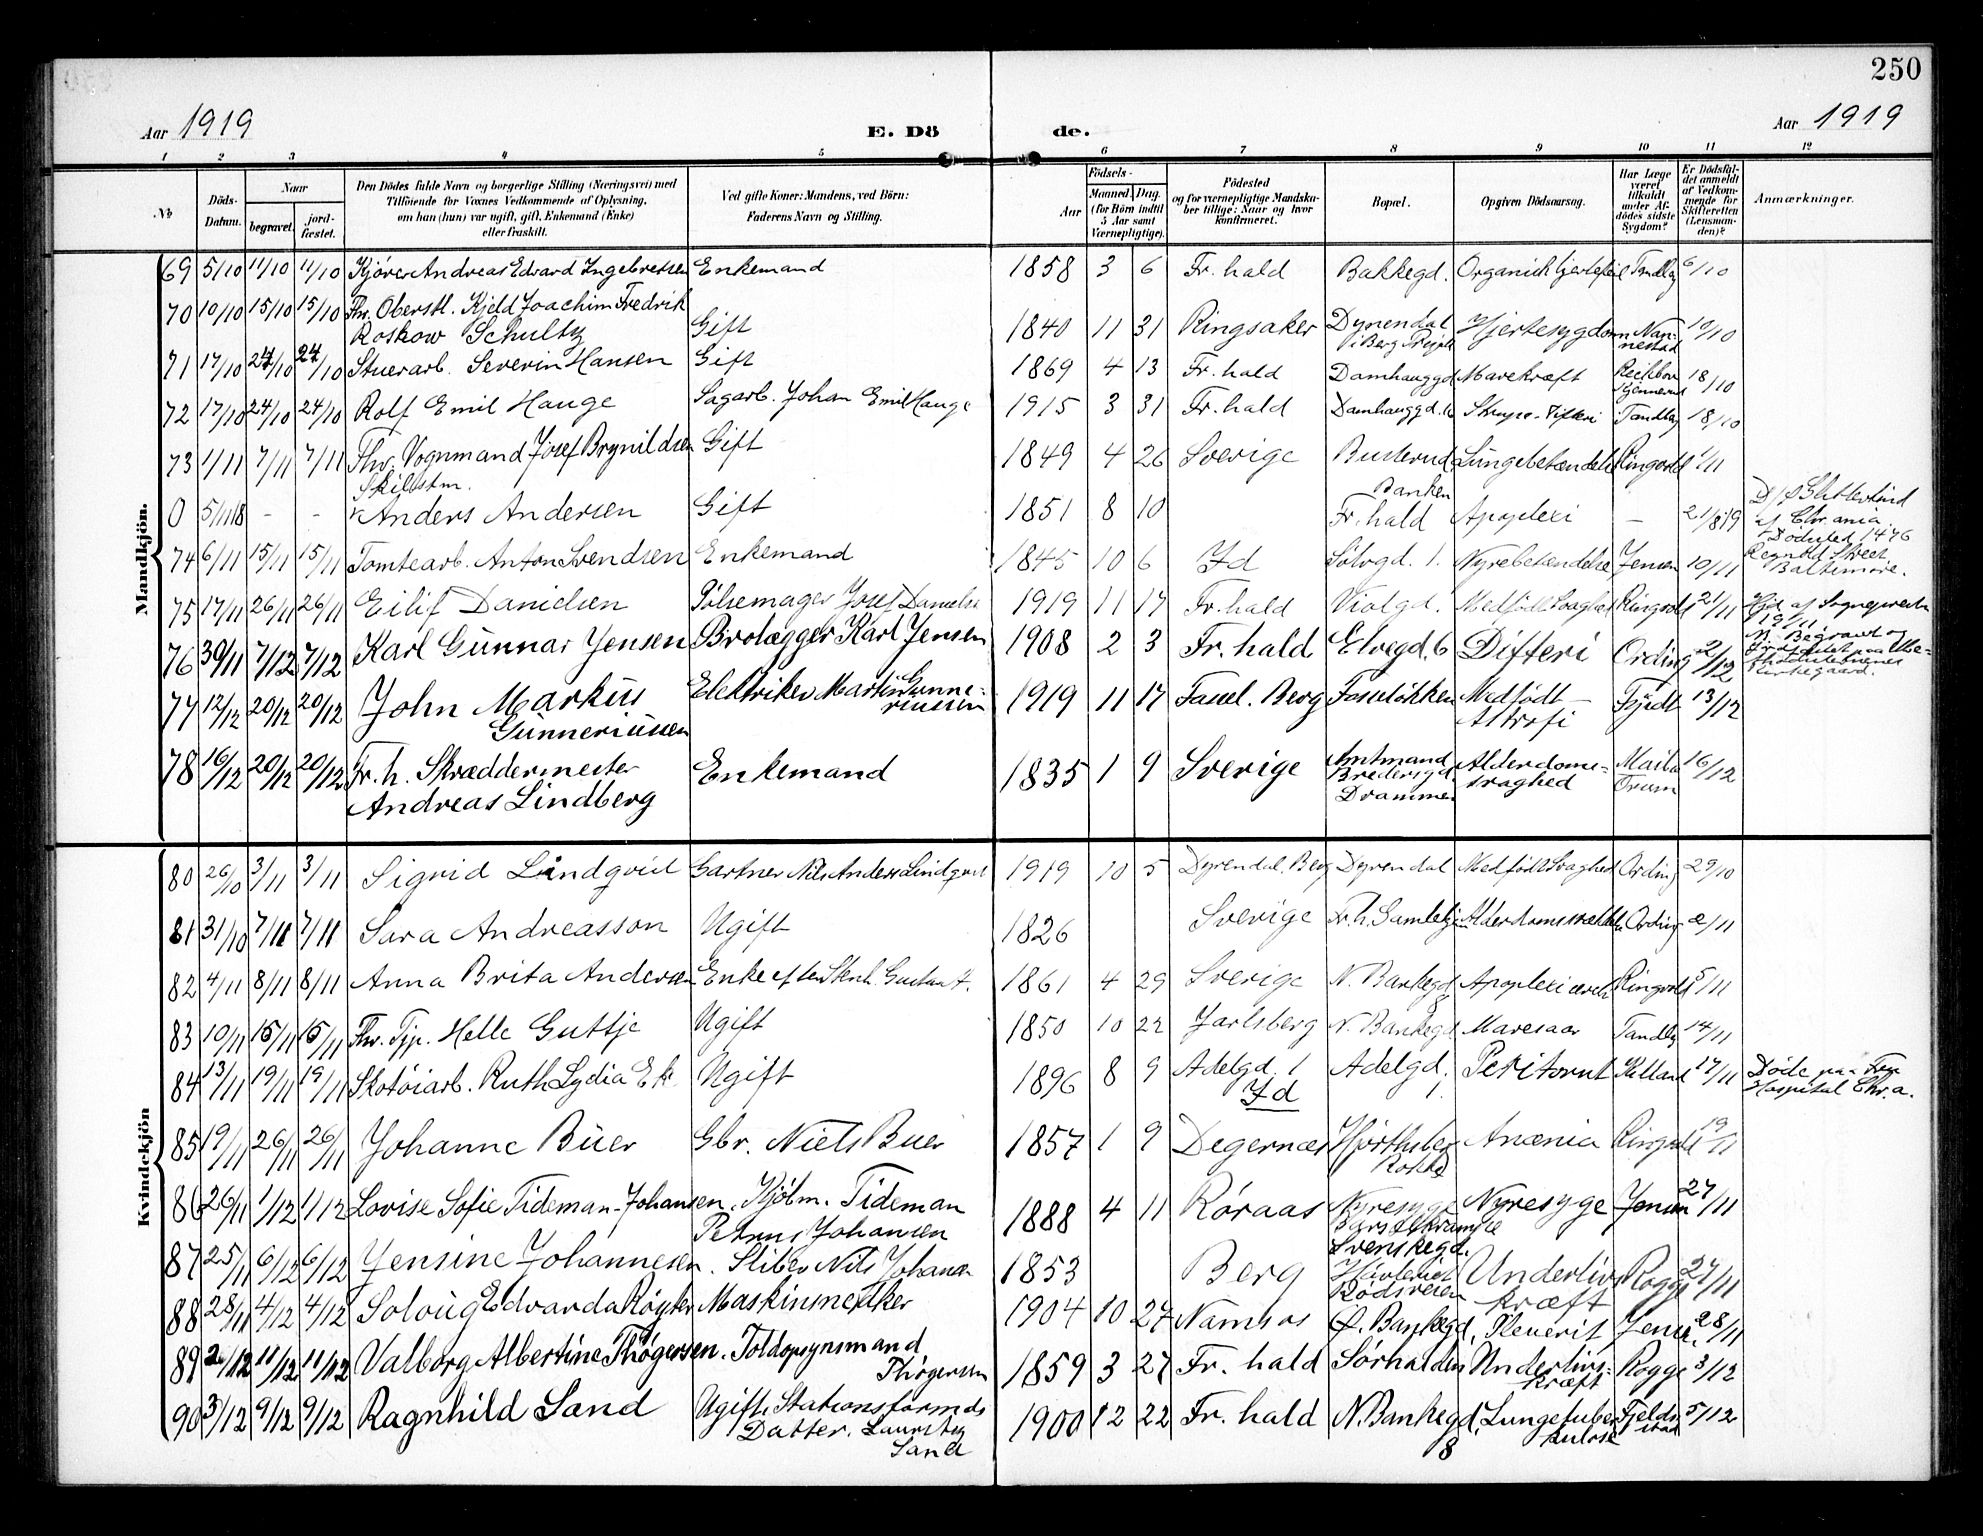 250
Aar 1919
E. Dö
de.
Aar 1919
1 2 3 4 5 6 7 8 9 10 11 12
No
Döds-Datum.
Naar
begravet.
jord-fæstet.
Den Dödes fulde Navn og borgerlige Stilling (Næringsvei) med
Tilföiende for Voxnes Vedkommende af Oplysning,
om han (hun) var ugift, gift, Enkemand (Enke)
eller fraskilt.
Ved gifte Koner: Mandens, ved Börn:
Faderens Navn og Stilling.
Födsels-
Aar
Maaned. Dag.
(for Börn indtil
5 Aar samt
Værnepligtige).
Födested
og for værnepligtige Mandska-
ber tillige: Naar og hvor
konfirmeret.
Bopæl.
Opgiven Dödsaarsag.
Har Læge
været
tilkaldt
under Af-
dödes sidste
Sygdom?
Er Dödsfal-
det anmeldt
af Vedkom-
mende for
Skifteretten
(Lensman-
den)?
Anmærkninger.
Mandkjön.
69 5/10 11/10 11/10 Kjører Andreas Edvard Ingebretsen Enkemand 1858 3 6 Fr. hald Bakkegd. Organisk hjertefeil Tandbg 6/10
70 10/10 15/10 15/10 Fhv. Oberstl. Kjeld Joachim Fredrik
Roskow Schultz Gift 1840 11 31 Ringsaker Dyrendal Hjertesygdom Nan-
nestad 10/10
71 17/10 24/10 24/10 Stuerarb. Severin Hansen Gift 1869 4 13 Fr. hald Damhauggd Mavekræft 18/10
72 17/10 24/10 24/10 Rolf Emil Hauge Sagarb. Johan Emil Hauge 1915 3 31 Fr. hald Damhauggd. Strupe-Difteri Tandbg 18/10
73 1/11 7/11 7/11 Fhv. Vognmand Josef Brynildsen Gift 1849 4 26 Sverige Lungebetændelse Ringvold 1/11
0 5/11 18 - - Anders Andersen Gift 1851 8 10 Banken
Fr. hald Apoplexi - 21/8 19
af Chr.ania
Dødsted 1476
Street
Baltimore.
74 6/11 15/11 15/11 Tomtearb. Anton Svendsen Enkemand 1845 10 6 Id Sølvgd. 1. Nyrebetændelse Jensen 10/11
75 17/11 26/11 26/11 Eilif Danielsen Pølsemager Josef Danielse 1919 11 17 Fr. hald Violgd. Medfødt Svaghed Ringvold 21/11 Hjd. af Sognepresten
19/11
76 30/11 7/12 7/12 Karl Gunnar Jensen Brolægger Karl Jensen 1908 2 3 Fr. hald Elvegd. 6 Difteri Ording 2/12 N. Begravet og
Jordfæstet paa
Kirkegaard.
77 12/12 20/12 20/12 John Markus
Gunneriussen Elektriker Martin Gunne-
riussen 1919 11 17 Berg Fosseløkken Medfødt
Altrofi 13/12
78 16/12 20/12 20/12 Fr. h. Skræddermester
Andreas Lindberg Enkemand 1835 1 9 Sverige Amtmand
Bredersgd.
Drammen Alderdoms-
svaghed 16/12
Kvindekjön
80 26/10 3/11 3/11 Sigrid Lindqvist Gartner Nils Anders Lindqvist 1919 10 5 Dyrendal, Berg Dyrendal Medfødt Svaghed Ording 29/10
81 31/10 7/11 7/11 Sara Andreasson Ugift 1826 Sverige Fr. h. Gamlehj. Ording 2/11
82 4/11 8/11 8/11 Anna Brita Andersen Enke efter Stenh. Gustav A. 1861 4 29 Sverige N. Bankegd Apoplexi Ringvold 5/11
83 10/11 15/11 15/11 Fhv. Tjp. Helle Guttje Ugift 1850 10 22 Jarlsberg N. Bankegd. Mavesaar Tandbg 14/11
84 13/11 19/11 19/11 Skotøiarb. Ruth Lydia Ek Ugift 1896 8 9 Adelgd. 1
Id Adelgd.
1 Peritonit Kielland 17/11 Døde paa
Hospital Chr.a.
85 19/11 26/11 26/11 Johanne Buer Gbr. Niels Buer 1857 1 9 Degernæs
Rokke Anæmia Ringvold 19/11
86 26/11 1/12 1/12 Lovise Sofie Tideman-Johansen. Kjølm. Tideman
Petrus Johansen 1888 4 11 Røraas Nyresyge
Barselkrampe
Svenskegd. Nyresyge Jensen 27/11
87 25/11 6/12 6/12 Jensine Johannesen. Sliber Nils Johann 1853 Berg
Rødsveien Underlivs
kræft Rogge 27/11
88 28/11 4/12 4/12 Solveig Edvarda Røyter Maskinmester 1904 10 27 Namsos Ø. Bankegd, Pleuerit Jensen 28/11
89 2/12 11/12 11/12 Valborg Albertine Thøgersen. Toldopsynsmand
Thøgersen 1859 3 27 Fr. hald Sørhalden Underlivs-
kræft Rogge 3/12
90 3/12 9/12 9/12 Ragnhild Sand Ugift, Stationsformds
Datter. Lauritz
Sand 1900 12 22 Fr. hald N. Bankegd,
8 Lungetuber
kulose Fjeld-
stad 5/12